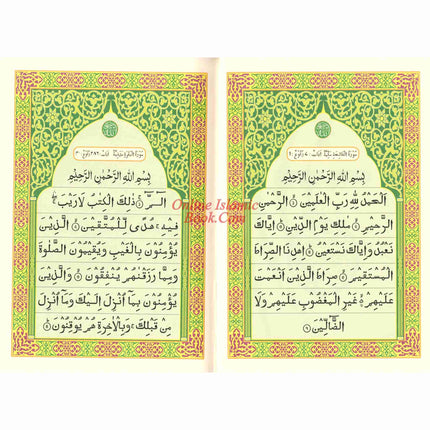 بِسْمِ اللهِ الرَّحْمٰنِ الرَّحِيْمِ
اَلْحَمْدُ لِلّٰهِ رَبِّ الْعٰلَمِيْنَ ۝ الرَّحْمٰنِ
الرَّحِيْمِ ۝ مٰلِكِ يَوْمِ الدِّيْنِ ۝ اِيَّاكَ
نَعْبُدُ وَاِيَّاكَ نَسْتَعِيْنُ ۝ اِهْدِنَا الصِّرَاطَ
الْمُسْتَقِيْمَ ۝ صِرَاطَ الَّذِيْنَ اَنْعَمْتَ
عَلَيْهِمْ ۝ غَيْرِ الْمَغْضُوْبِ عَلَيْهِمْ وَلَا
الضَّآلِّيْنَ ۝
بِسْمِ اللهِ الرَّحْمٰنِ الرَّحِيْمِ
الٓمّٓ ۝ ذٰلِكَ الْكِتٰبُ لَا رَيْبَ
فِيْهِ هُدًى لِّلْمُتَّقِيْنَ ۝ الَّذِيْنَ
يُؤْمِنُوْنَ بِالْغَيْبِ وَيُقِيْمُوْنَ الصَّلٰوةَ
وَمِمَّا رَزَقْنٰهُمْ يُنْفِقُوْنَ ۝ وَالَّذِيْنَ
يُؤْمِنُوْنَ بِمَآ اُنْزِلَ اِلَيْكَ وَمَآ اُنْزِلَ
مِنْ قَبْلِكَ وَبِالْاٰخِرَةِ هُمْ يُوْقِنُوْنَ ۝
Online Islamic
Book.Com